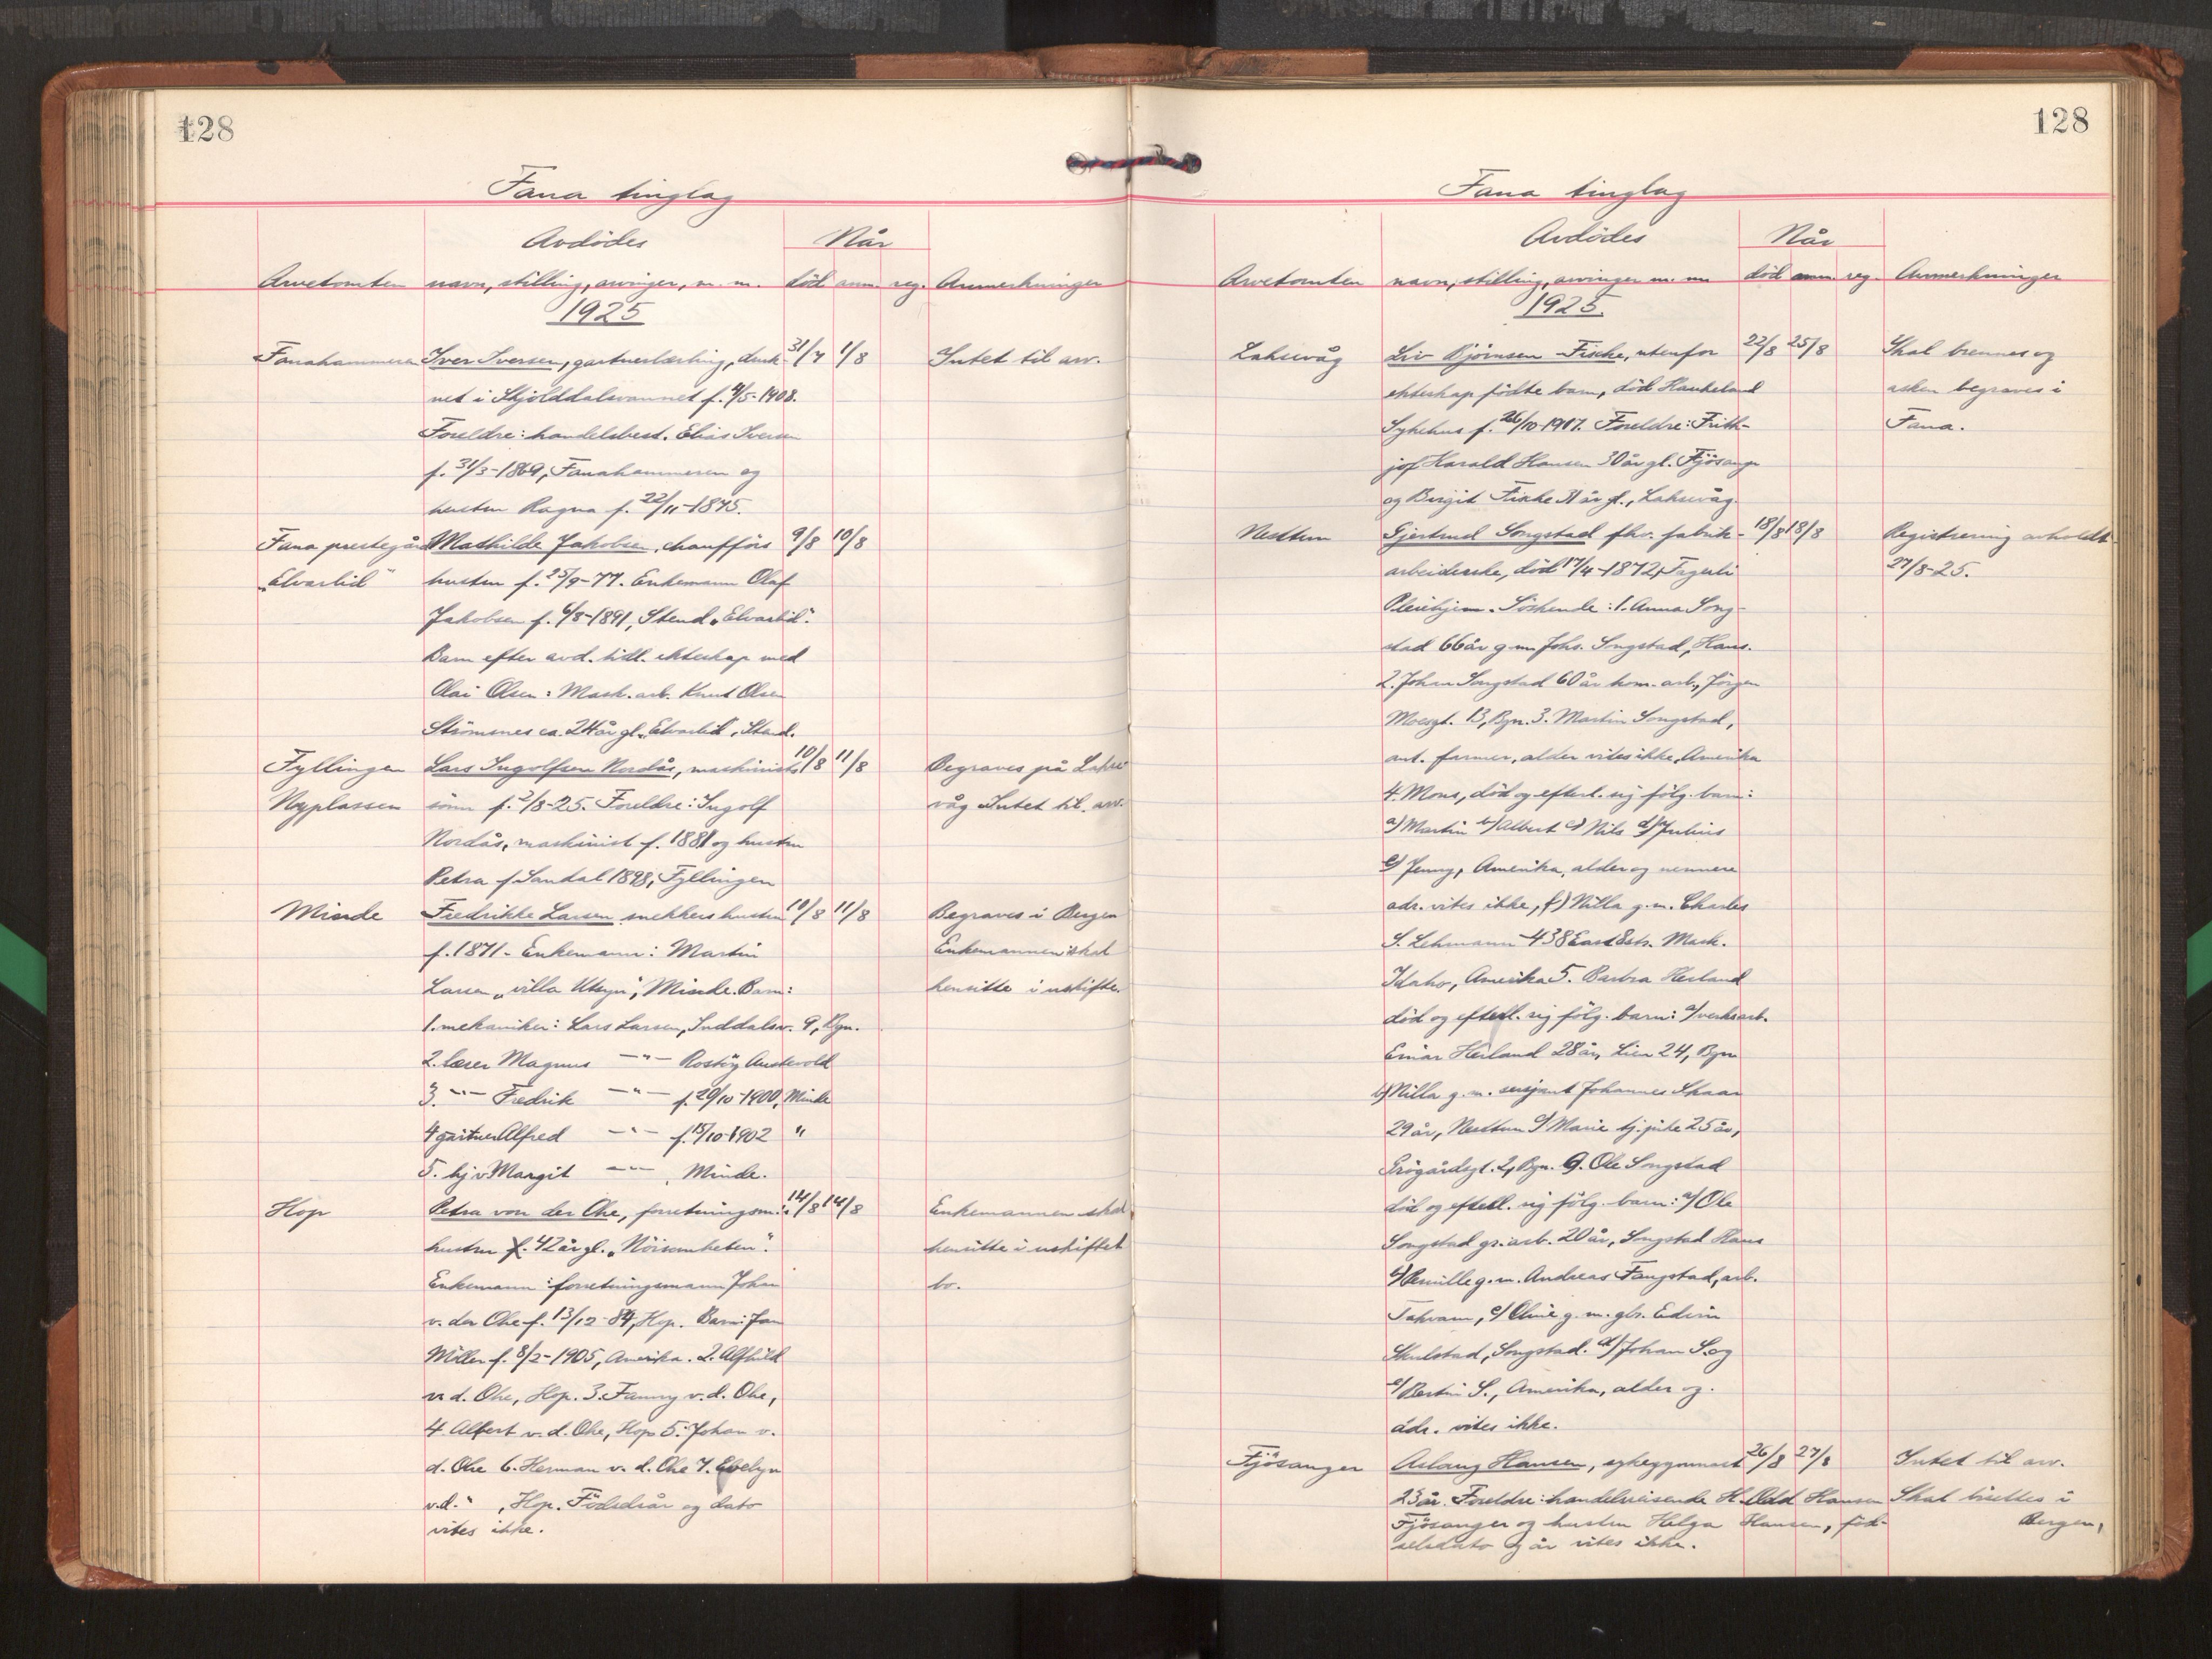 128
Fana tinglag
Avdødes
Når
Arvetomten navn, stilling, arvinger, m. m. död anm. reg. Anmerkninger
1925
Fanahammeren Iver Iversen, gartnerlærling, druk- 31/7 1/8 Intet til arv.
net i Skjolddalsvannet f. 4/5-1908.
Foreldre: handelsbest. Elias Iversen
f. 31/3-1869, Fanahammeren og
hustru Ragna f. 22/11-1875.
Fana prestegård Mathilde Jakobsen, chaufförs 9/8 10/8
"Elvarlid" hustru f. 25/9-77. Enkemann Olaf
Jakobsen f. 6/8-1891, Stend "Elvarlid".
Barn efter avd. tidl. ekteskap med
Olai Olsen: Mask. arb. Knut Olsen
Strömsnes ca. 24 år gl. "Elvarlid", Stend.
Fyllingen Lars Ingolfsen Nordås, maskinists 10/8 11/8 Begraves på Lakse-
Nyplassen sönn f. 2/8-25. Foreldre: Ingolf våg Intet til arv.
Nordås, maskinist f. 1881 og hustru
Petra f Sandal 1898, Fyllingen
Minde Fredrikke Larsen snekkers hustru 10/8 11/8 Begraves i Bergen
f. 1871 - Enkemann: Martin Enkemannen skal
Larsen "villa Utsyn", Minde. Barn: hensitte i uskifte.
1. mekaniker: Lars Larsen, Inddalsv. 9, Bgn.
2. lærer Magnus -"- Rostöy Austevold
3. -"- Fredrik -"- f. 29/10-1900, Minde
4 gartner Alfred -"- f. 15/10-1902 "
5. hj. v. Margit -"- , Minde.
Hop Petra von der Ohe, forretningsm. 14/8 14/8 Enkemannen skal
hustru f. 42 år gl. "Nöisomheten". hensitte i uskiftet
Enkemann: forretningsmann Johan bo.
v. der Ohe f. 13/12-84, Hop. Barn: Jan
Möller f. 8/2-1905, Amerika. 2. Alfhild
v. d. Ohe, Hop. 3. Fanny v. d. Ohe,
4. Albert v. d. Ohe, Hop 5. Johan v.
d. Ohe 6. Herman v. d. Ohe 7. Evelyn
v.d. " , Hop. Födselsår og dato
vites ikke.
128
Fana tinglag
Avdödes
Når
Arvetomten navn, stilling, arvinger m. m død anm. reg. Anmerkninger
1925.
Laksevåg Liv Björnsen Fische, utenfor 22/8 25/8 Skal brennes og
ekteskap födte barn, död Haukeland asken begraves i
Sykehus f. 26/10-1917. Foreldre: Frith- Fana.
jof Harald Hansen 30 år gl. Fjösanger
og Birgit Fische 31 år gl., Laksevåg.
Nesttun Gjertrud Songstad fhv. fabrik- 18/8 18/8 Registrering avholdt
arbeiderske, död 17/4-1872, Fagerli 27/8-25.
Pleiehjem. Söskende: 1. Anna Song-
stad 66 år g. m. Johs. Songstad, Haus.
2. Johan Songstad 60 år kom. arb., Jörgen
Moesgt. 13, Bgn. 3. Martin Songstad,
ant. farmer, alder vites ikke, Amerika
4. Mons, död og efterl. sig fölg. barn:
a) Martin b) Albert c) Nils d) Julius
e) Jenny, Amerika, alder og nermere
adr. vites ikke, f) Nilla g. m. Charles
S. Lehmann 438 East 8 str. Mask.
Idaho, Amerika 5. Barbra Herland
död og efterl. sig fölg. barn: a) verksarb.
Einar Herland 28 år, Lien 24, Bgn
b) Nilla g. m. sersjant Johannes Skaar
29 år, Nesttun c) Marie tj. pike 25 år,
Erögårdsgt. 2, Bgn. 6. Ole Songstad
död og efterl. sig fölg. barn: a) Ole
Songstad gr. arb. 20 år, Songstad Haus
b) Pernille g. m. Andreas Fangstad, arb.
Takvam, c) Oline g. m. gbr. Edvin
Skulstad, Songstad. d) Johan S. og
e) Bertin S., Amerika, alder og.
adr. vites ikke.
Fjösanger Aslaug Hansen, sykegymnast 26/8 27/8 Intet til arv.
23 år. Foreldre: handelsreisende H. Odd Hansen Skal bisettes i
Fjösanger og hustru Helga Hansen, föd- Bergen,
selsdato og år vites ikke.